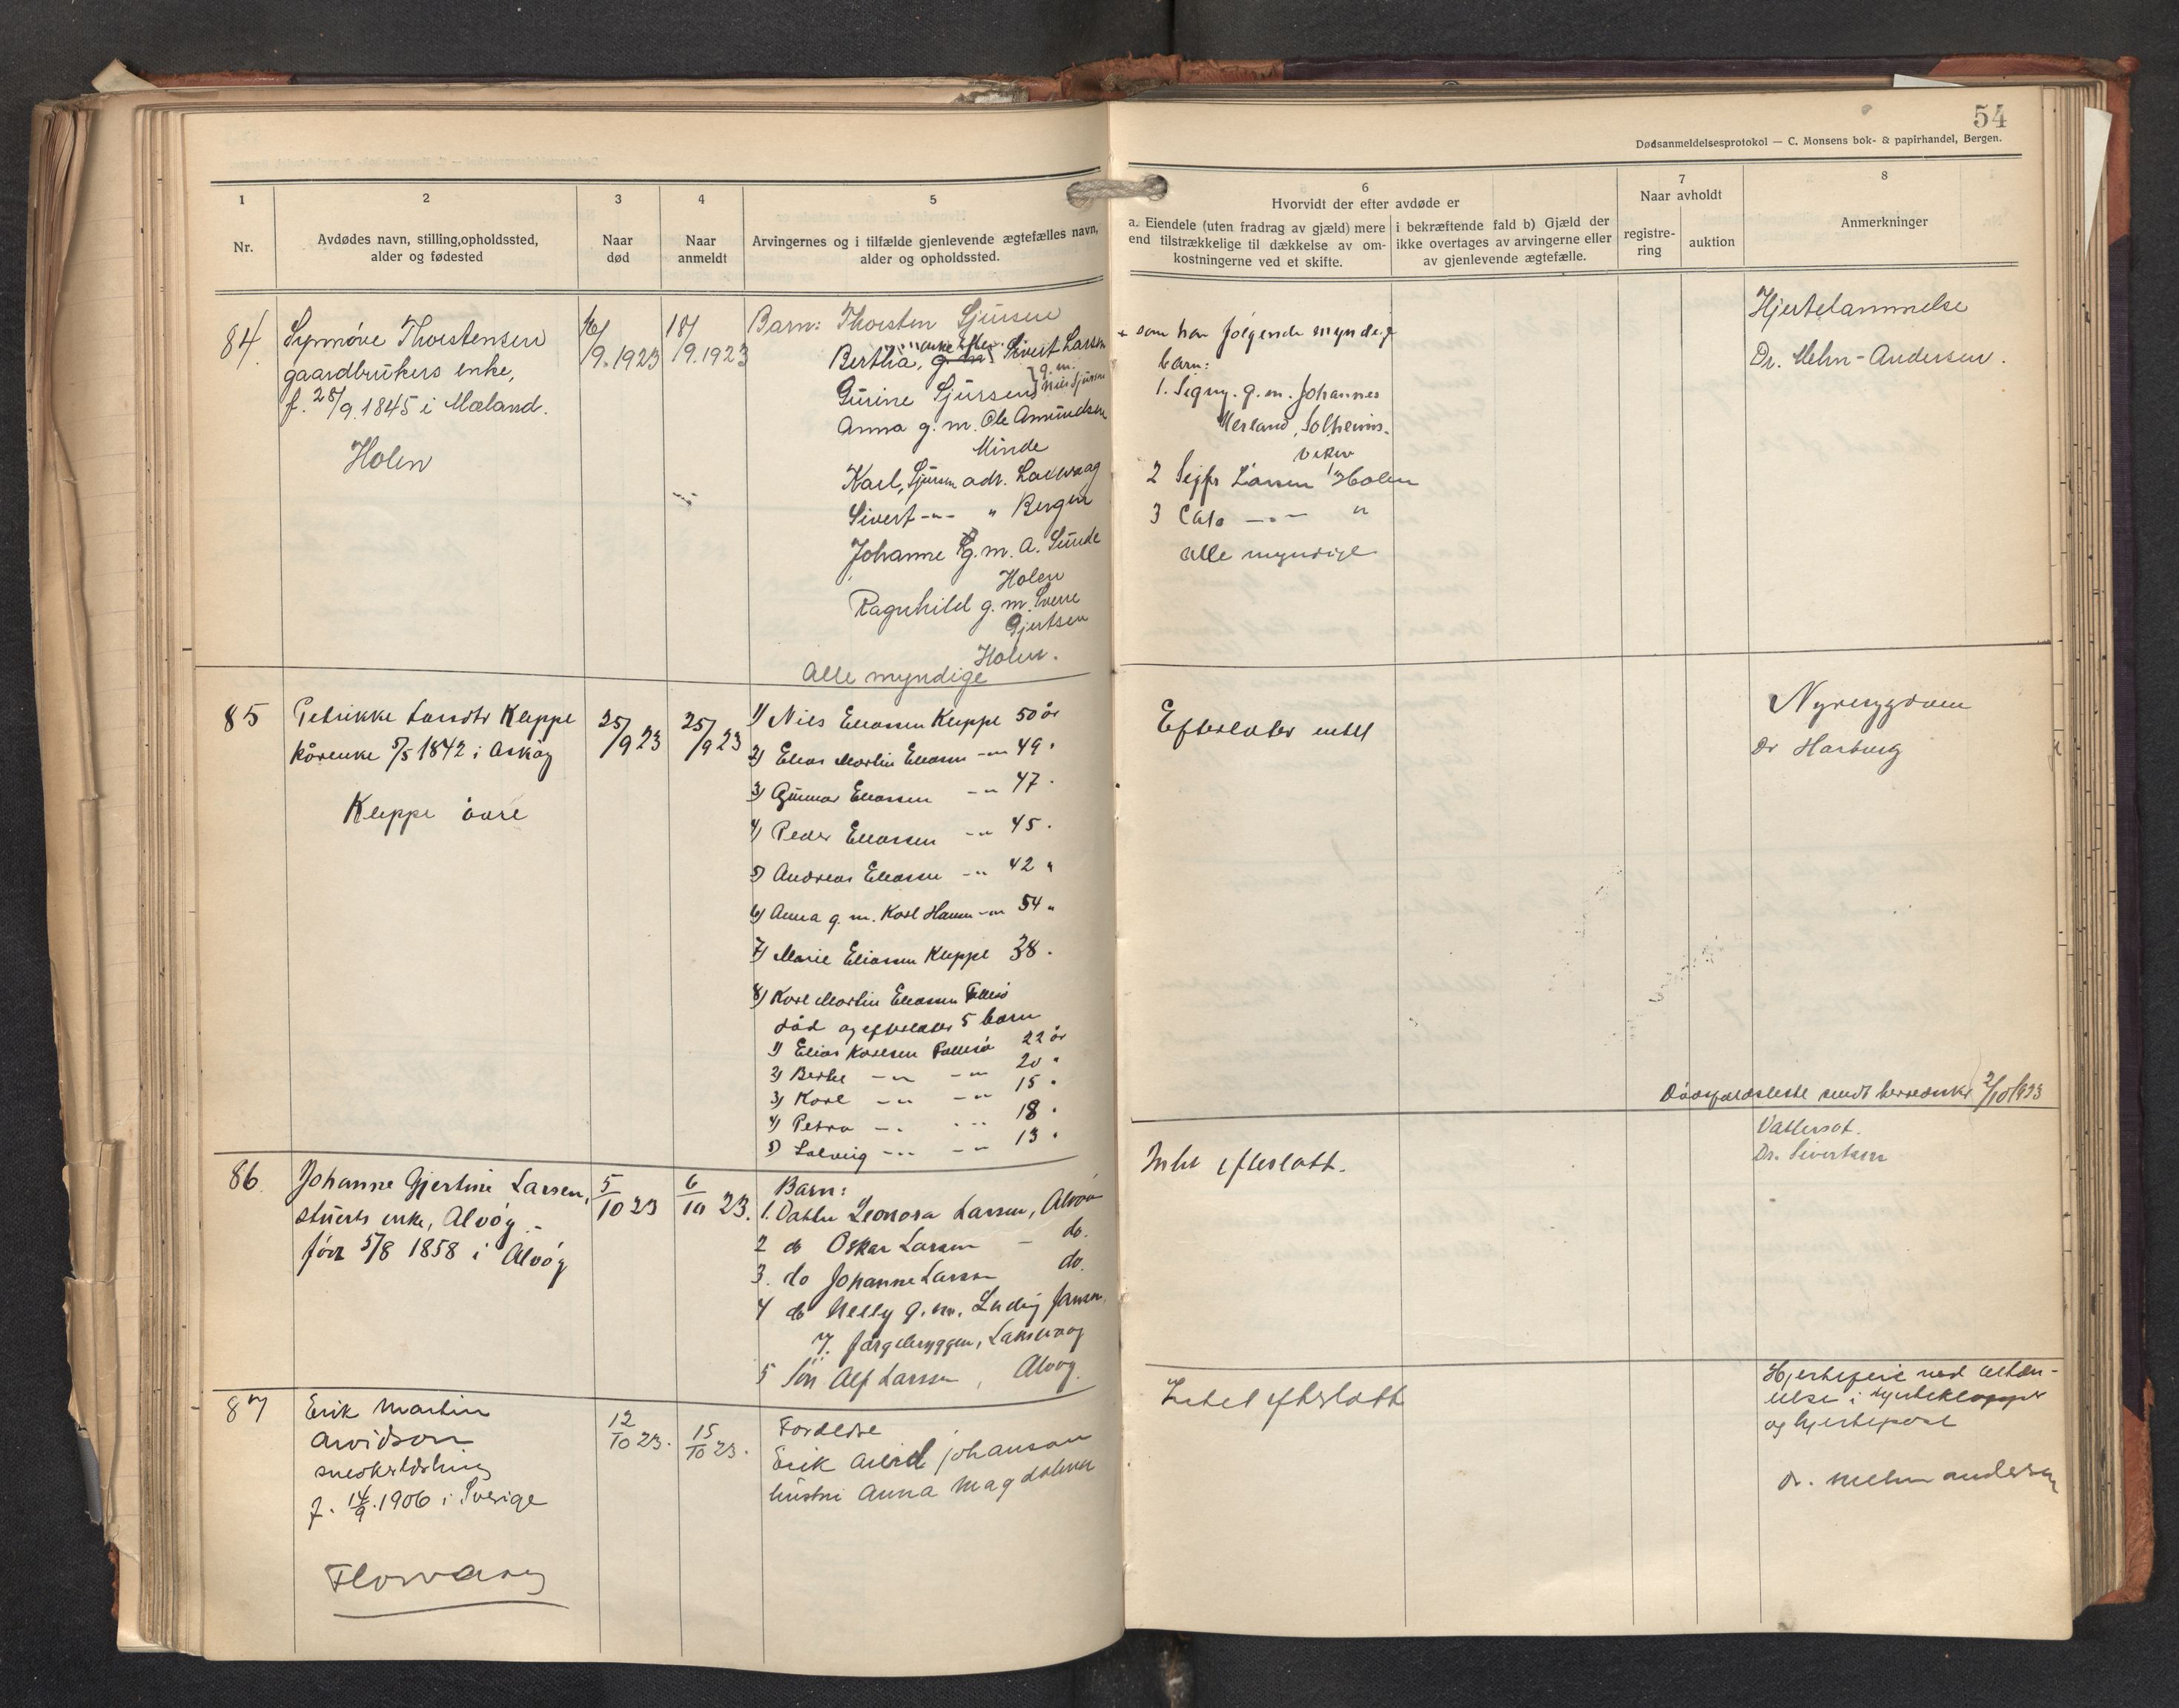 54
Dødsanmeldelsesprotokol — C. Monsens bok- & papirhandel, Bergen.
1
Nr.
2
Avdødes navn, stilling, opholdssted,
alder og fødested
3
Naar
død
4
Naar
anmeldt
5
Arvingernes og i tilfælde gjenlevende ægtefælles navn,
alder og opholdssted.
6
Hvorvidt der efter avdøde er
a. Eiendele (uten fradrag av gjæld) mere
end tilstrækkelige til dækkelse av om-
kostningerne ved et skifte.
i bekræftende fald b) Gjæld der
ikke overtages av arvingerne eller
av gjenlevende ægtefælle.
7
Naar avholdt
registre-
ring
auktion
8
Anmerkninger
84.
Synnøve Thorstensen
gaardbrukers enke,
f. 28/9.1845 i Mæland.
Holen
16/
9.1923
18/
9.1923
Barn: Thorsten Sjursen
Bertha, enke efter Sivert Larsen
Gurine Sjursen g.m. Nils Sjursen
Anna g.m. Ole Amundsen
Minde
Karl, Sjursen adr. Laxevaag
Sivert -"- " Bergen
Johanne g.m. A. Sunde
Holen
Ragnhild g.m. Sverre
Gjertsen
Holen.
Alle myndige
+ som har følgende myndige
barn:
1. Signy. g.m. Johannes
Solheims-
viken
2 Larsen Holen
3 -"- "
alle myndige
Hjertelammelse
Dr. Mehn-Andersen.
85
Petrikke Larsdtr Kleppe
kårenke 5/5 1842 i Askøy
Kleppe øvre
25/
9 23
25/
9 23
1) Nils Eliassen Kleppe 50 år
2) Elias Martin Eliassen -"- 49 "
3) Gunnar Eliassen -"- 47 "
4) Peder Eliassen -"- 45 "
5) Andreas Eliassen -"- 42 "
6) Anna g.m. Karl Hansen -"- 54 "
7) Marie Eliassen Kleppe 38 "
8) Karl Martin Eliassen
død og efterlater 5 barn
1) Elias Karlsen 22 år
2) Berthe -"- -"- 20 "
3) Karl -"- -"- 15 "
4) Petra -"- -"- 18 "
5) Solveig -"- -"- 13 "
Efterlater intet
Nyresygdom
Dr Harburg
Dødsfaldsliste sendt 2/10 1923
86.
Johanne Gjertine Larsen,
stuerts enke, Alvøy.
født 5/8 1858 i Alvøy
5
10 23
6
10 23.
Barn:
1. Datter Leonora Larsen, Alvøen
2 do Oskar Larsen – do.
3. do Johanne Larsen do.
4 do Nelly g.m. Ludvig Jansen,
Laksevaag
5 Søn Alf Larsen, Alvøy.
Intet efterlatt.
Vattersot.
Dr. Sivertsen
87
Erik Martin
Arvidson
snekkerlærling
f. 14/9.1906 i Sverige
Florvaag
12
10 23.
15
10 23.
Forældre
Erik Arvid Johanson
hustru Anna Magdalena
Intet efterlatt
Hjertefeil med betæn-
delse i hjerteklapper
og hjertepose
Dr. Mehn Andersen